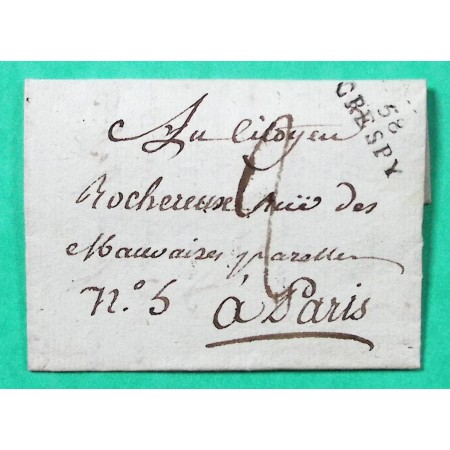 58
CRESPY
Au Citoyen
Rochereux ruë des
Mauvaises parolles
N.º 5 à Paris
2